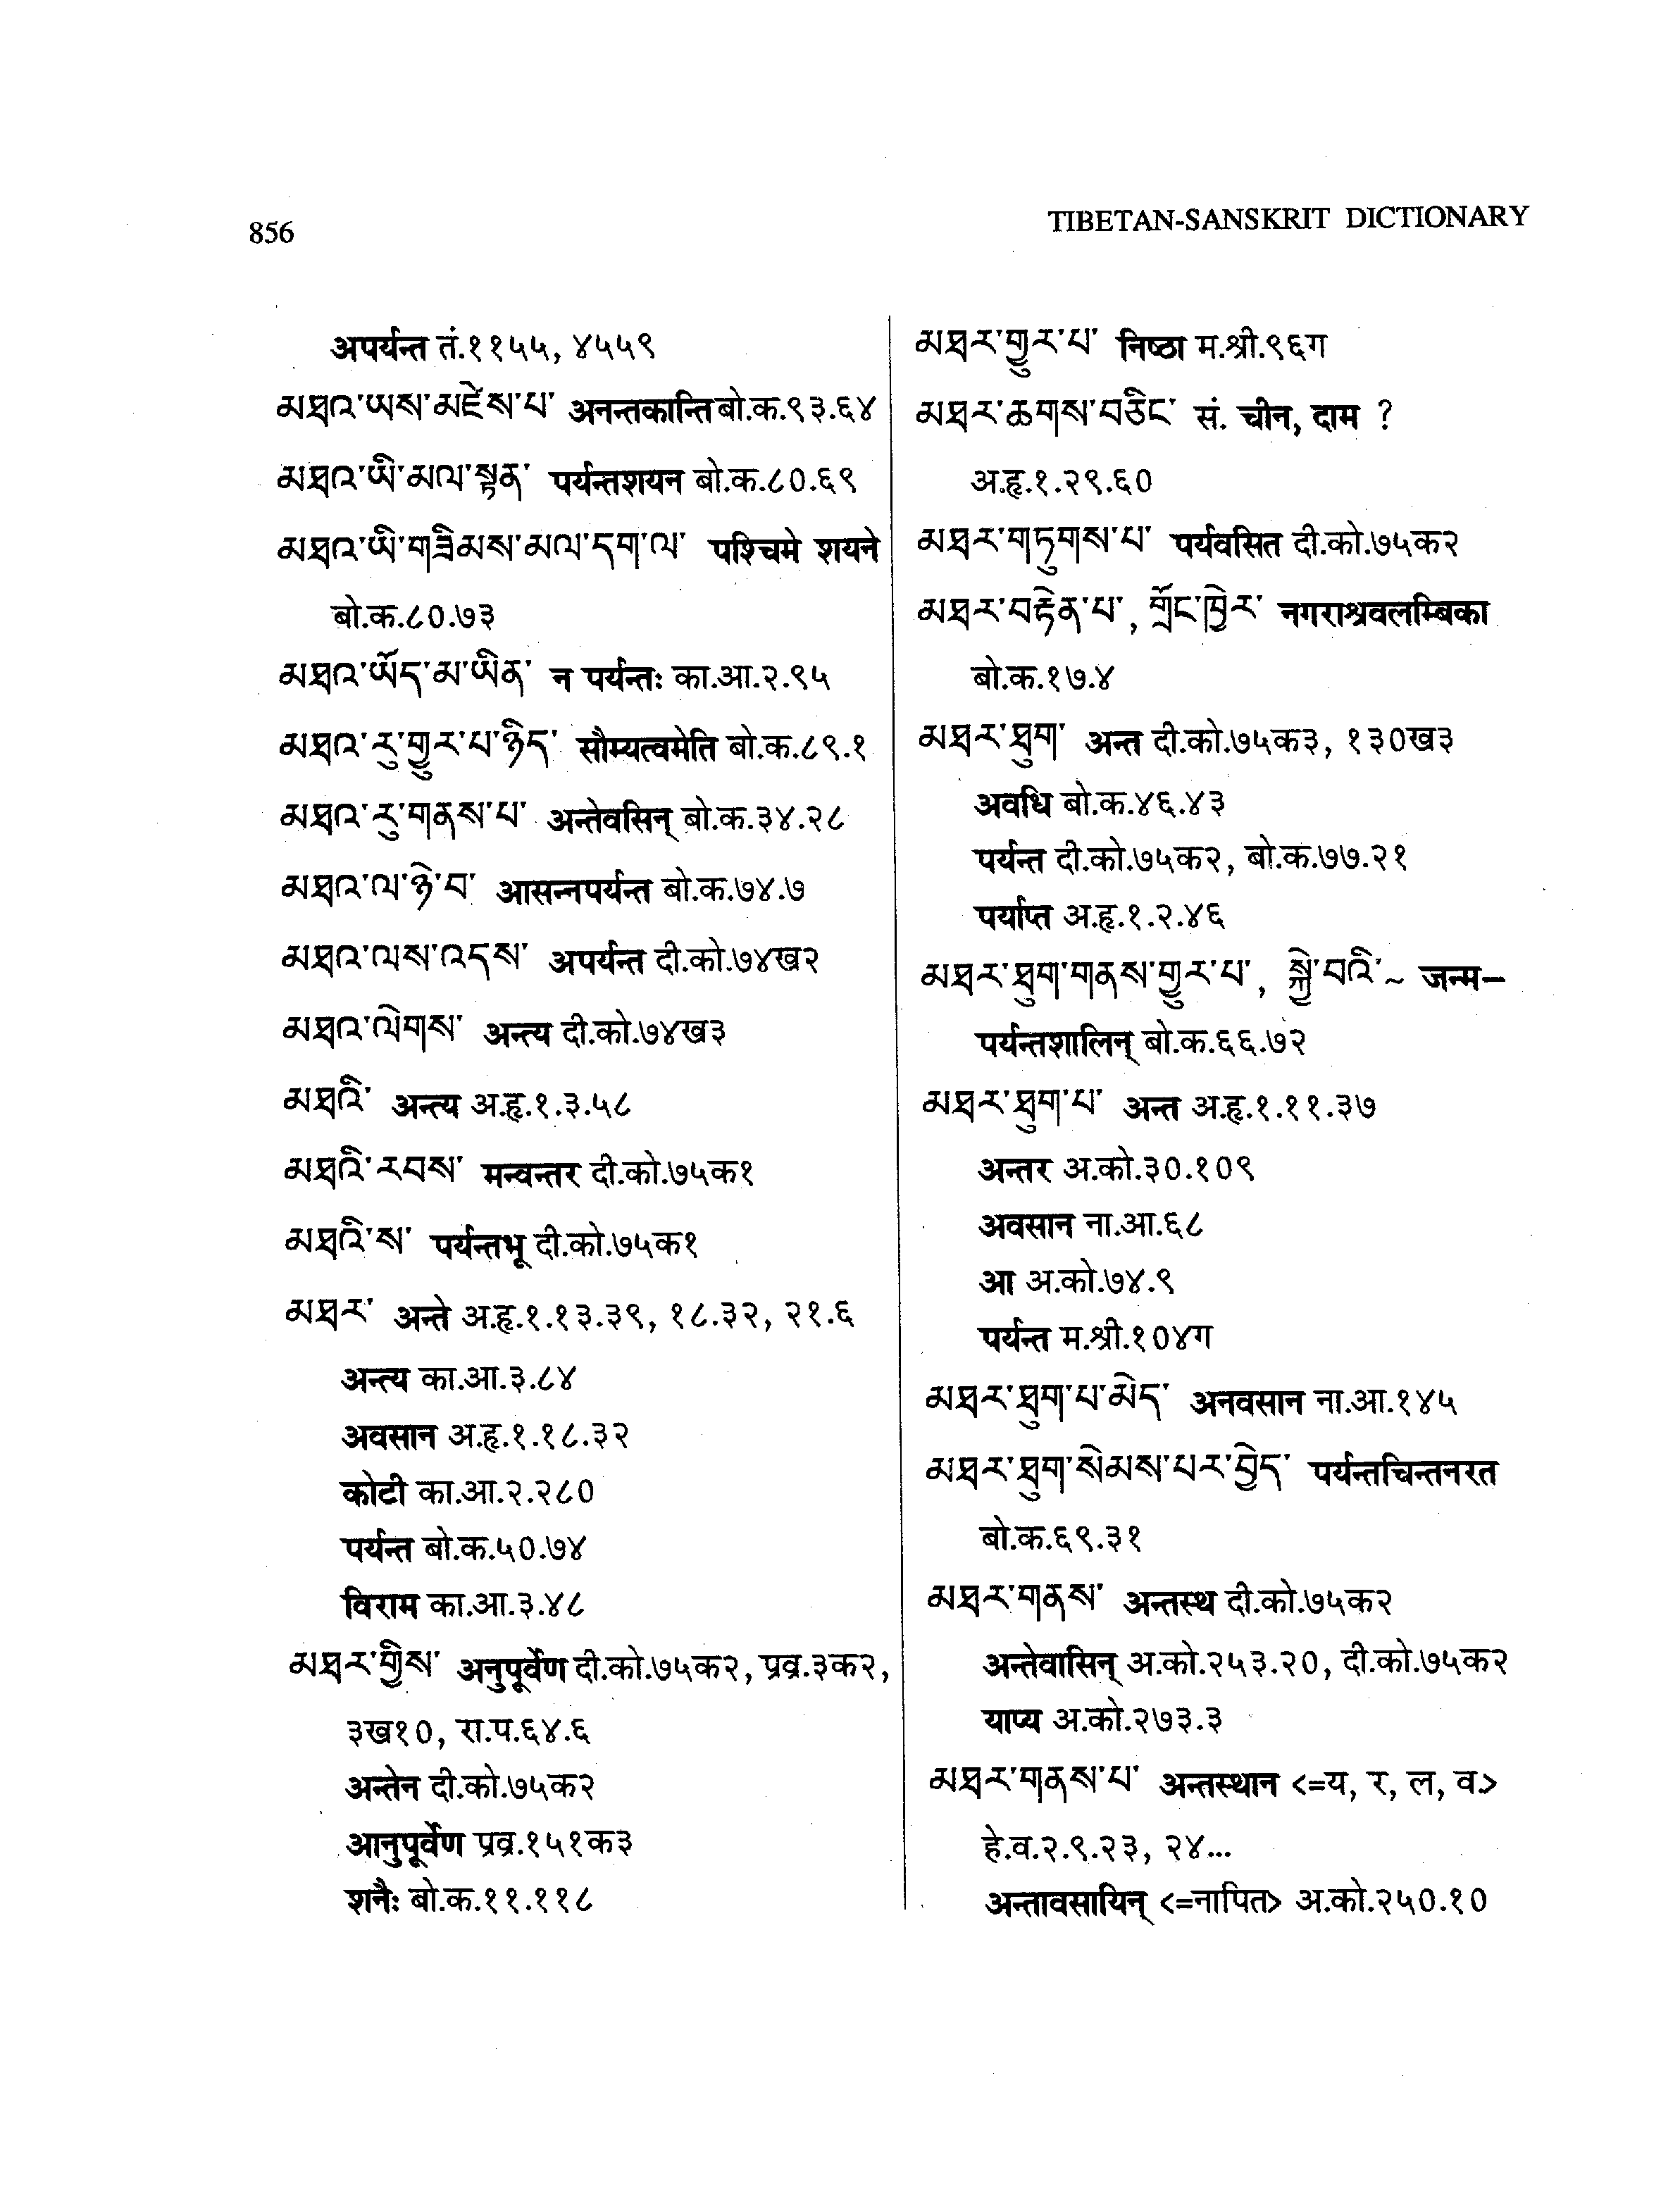 856
TIBETAN-SANSKRIT DICTIONARY
अपर्यन्त तं.११५५, ४५५९
མཐའ་ཡས་མཛེས་པ་ अनन्तकान्ति बो.क.९३.६४
མཐའ་ཡི་མལ་སྟན་ पर्यन्तशयन बो.क.८०.६९
མཐའ་ཡི་གཟིམས་མལ་དག་ལ་ पश्चिमे शयने
बो.क.८०.७३
མཐའ་ཡོད་མ་ཡིན་ न पर्यन्तः का.आ.२.९५
མཐའ་རུ་གྱུར་པ་ཉིད་ सौम्यत्वमेति बो.क.८९.१
མཐའ་རུ་གནས་པ་ अन्तेवसिन् बो.क.३४.२८
མཐའ་ལ་ཉེ་བ་ आसन्नपर्यन्त बो.क.७४.७
མཐའ་ལས་འདས་ अपर्यन्त दी.को.७४ख२
མཐའ་ལེགས་ अन्त्य दी.को.७४ख३
མཐའི་ अन्त्य अ.हृ.१.३.५८
མཐའི་རབས་ मन्वन्तर दी.को.७५क१
མཐའི་ས་ पर्यन्तभू दी.को.७५क१
མཐར་ अन्ते अ.हृ.१.१३.३९, १८.३२, २१.६
अन्त्य का.आ.३.८४
अवसान अ.हृ.१.१८.३२
कोटी का.आ.२.२८०
पर्यन्त बो.क.५०.७४
विराम का.आ.३.४८
མཐར་གྱིས་ अनुपूर्वेण दी.को.७५क२, प्रव्र.३क२,
३ख१०, रा.प.६४.६
अन्तेन दी.को.७५क२
आनुपूर्वेण प्रव्र.१५१क३
शनैः बो.क.११.११८
མཐར་གྱུར་པ་ निष्ठा म.श्री.९६ग
མཐར་ཆགས་བཅིང་ सं. चीन, दाम ?
अ.हृ.१.२९.६०
མཐར་གཏུགས་པ་ पर्यवसित दी.को.७५क२
མཐར་བརྟེན་པ་, གྲོང་ཁྱེར་ नगराश्रवलम्बिका
बो.क.१७.४
མཐར་ཐུག་ अन्त दी.को.७५क३, १३०ख३
अवधि बो.क.४६.४३
पर्यन्त दी.को.७५क२, बो.क.७७.२१
पर्याप्त अ.हृ.१.२.४६
མཐར་ཐུག་གནས་གྱུར་པ་, སྐྱེ་བའི་~ जन्म–
पर्यन्तशालिन् बो.क.६६.७२
མཐར་ཐུག་པ་ अन्त अ.हृ.१.११.३७
अन्तर अ.को.३०.१०९
अवसान ना.आ.६८
आ अ.को.७४.९
पर्यन्त म.श्री.१०४ग
མཐར་ཐུག་པ་མེད་ अनवसान ना.आ.१४५
མཐར་ཐུག་སེམས་པར་བྱེད་ पर्यन्तचिन्तनरत
बो.क.६९.३१
མཐར་གནས་ अन्तस्थ दी.को.७५क२
अन्तेवासिन् अ.को.२५३.२०, दी.को.७५क२
याप्य अ.को.२७३.३
མཐར་གནས་པ་ अन्तस्थान <=य, र, ल, व>
हे.व.२.९.२३, २४...
अन्तावसायिन् <=नापित> अ.को.२५०.१०